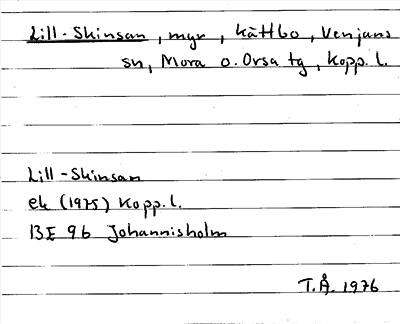 Lill-Skinsan, myr, Kättbo, Venjans
sn, Mora o. Orsa tg, Kopp. l.
Lill-Skinsan
ek (1975) Kopp. l.
13E 9b Johannisholm
T.Å. 1976